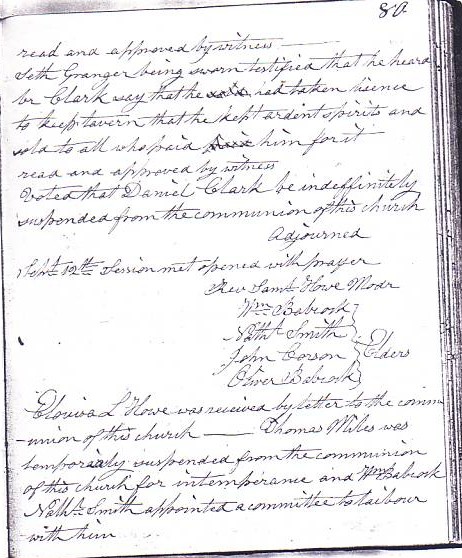 80
read and approved by witness
Seth Granger being sworn testified that he heard
br Clark say that he said had taken licence
to keep tavern that he kept ardent spirits and
sold to all who paid him for it
read and approved by witness
Voted that Daniel Clark be indeffinitely
suspended from the communion of this church
Adjourned
Sept. 12th Session met opened with prayer
Rev Saml Howe Modr
Wm Babcock
Nathl Smith
John Corson } Elders
Oliver Babcock
Elouisa L Howe was received by letter to the comm
-union of this church — Thomas Miles was
temporaialy suspended from the communion
of this church for intemperance and Wm Babcock
Nathl. Smith appointed a committee to laibour
with him